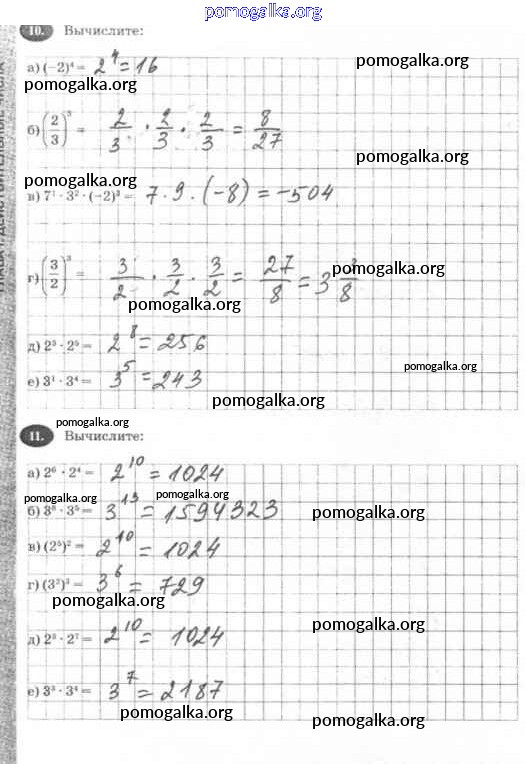 pomogalka.org
10. Вычислите:
pomogalka.org
а) (−2)⁴ = 2⁴ = 16
pomogalka.org
б) (2/3)³ = 2/3 · 2/3 · 2/3 = 8/27
pomogalka.org
pomogalka.org
в) 7¹ · 3² · (−2)³ = 7 · 9 · (−8) = −504
г) (3/2)³ = 3/2 · 3/2 · 3/2 = 27/8 = 3 3/8
pomogalka.org
pomogalka.org
д) 2³ · 2⁵ = 2⁸ = 256
pomogalka.org
е) 3¹ · 3⁴ = 3⁵ = 243
pomogalka.org
pomogalka.org
11. Вычислите:
а) 2⁶ · 2⁴ = 2¹⁰ = 1024
pomogalka.org
pomogalka.org
б) 3⁸ · 3⁵ = 3¹³ = 1594323
pomogalka.org
в) (2⁵)² = 2¹⁰ = 1024
г) (3²)³ = 3⁶ = 729
pomogalka.org
pomogalka.org
д) 2³ · 2⁷ = 2¹⁰ = 1024
е) 3³ · 3⁴ = 3⁷ = 2187
pomogalka.org
pomogalka.org